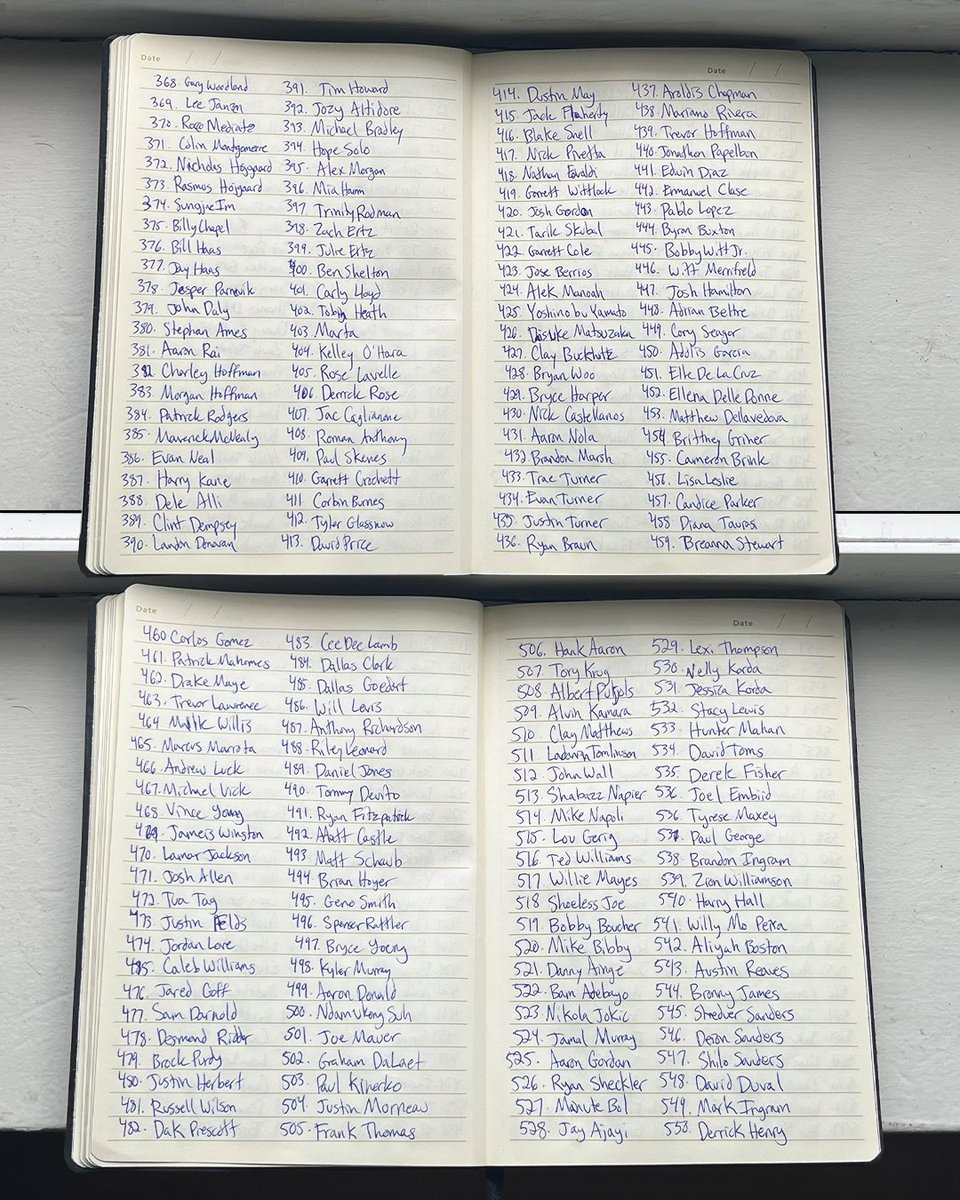 Date / /
368. Gary Woodland
369. Lee Janzen
370. Roco Mediate
371. Colin Montgomerre
372. Nicholas Hojgaard
373. Rasmus Hojgaard
374. Sungjae Im
375. Billy Chapel
376. Bill Haas
377. Jay Haas
378. Jesper Parnevik
379. John Daly
380. Stephan Ames
381. Aaron Rai
382. Charley Hoffman
383. Morgan Hoffman
384. Patrick Rodgers
385. Maverick McNealy
386. Evan Neal
387. Harry Kane
388. Dele Alli
389. Clint Dempsey
390. Landon Donovan
391. Tim Howard
392. Jozy Altidore
393. Michael Bradley
394. Hope Solo
395. Alex Morgan
396. Mia Hamm
397. Trinity Rodman
398. Zach Ertz
399. Julie Ertz
400. Ben Shelton
401. Carly Lloyd
402. Tobin Heath
403. Marta
404. Kelley O'Hara
405. Rose Lavelle
406. Derrick Rose
407. Jac Caglianone
408. Roman Anthony
409. Paul Skenes
410. Garrett Crochett
411. Corbin Burnes
412. Tyler Glassnow
413. David Price
Date / /
414. Dustin May
415. Jack Flaherty
416. Blake Snell
417. Nick Pivetta
418. Nathan Eovaldi
419. Garrett Wittlock
420. Josh Gordon
421. Tarik Skubal
422. Garrett Cole
423. Jose Berrios
424. Alek Manoah
425. Yoshinobu Yamato
426. Disuke Matsuzaka
427. Clay Buckholtz
428. Bryan Woo
429. Bryce Harper
430. Nick Castellanos
431. Aaron Nola
432. Brandon Marsh
433. Trae Turner
434. Evan Turner
435. Justin Turner
436. Ryan Braun
437. Aroldis Chapman
438. Mariano Rivera
439. Trevor Hoffman
440. Jonathan Papelbon
441. Edwin Diaz
442. Emmanuel Clase
443. Pablo Lopez
444. Byron Buxton
445. Bobby Witt Jr.
446. Witt Merrifield
447. Josh Hamilton
448. Adrian Beltre
449. Cory Seager
450. Adolis Garcia
451. Elle De La Cruz
452. Ellena Delle Donne
453. Matthew Dellavedova
454. Brittney Griner
455. Cameron Brink
456. Lisa Leslie
457. Candice Parker
458 Diana Taurasi
459. Breanna Stewart
Date / /
460 Carlos Gomez
461. Patrick Mahomes
462. Drake Maye
463. Trevor Lawrence
464. Malik Willis
465. Marcus Marrota
466. Andrew Luck
467. Michael Vick
468. Vince Young
469. Jameis Winston
470. Lamar Jackson
471. Josh Allen
472. Tua Tag
473. Justin Fields
474. Jordan Love
475. Caleb Williams
476. Jared Goff
477. Sam Darnold
478. Desmond Ridder
479. Brock Purdy
480. Justin Herbert
481. Russell Wilson
482. Dak Prescott
483. Cee Dee Lamb
484. Dallas Clark
485. Dallas Goedert
486. Will Levis
487. Anthony Richardson
488. Riley Leonard
489. Daniel Jones
490. Tommy Devito
491. Ryan Fitzpatrick
492. Matt Castle
493. Matt Schaub
494. Brian Hoyer
495. Geno Smith
496. Spenser Rattler
497. Bryce Young
498. Kyler Murray
499. Aaron Donald
500. Ndamukong Suh
501. Joe Mauer
502. Graham DaLaet
503. Paul Kinerko
504. Justin Morneau
505. Frank Thomas
Date / /
506. Hank Aaron
507. Tory Krug
508. Albert Pujols
509. Alvin Kamara
510. Clay Matthews
511 Ladanian Tomlinson
512. John Wall
513. Shabazz Napier
514. Mike Napoli
515. Lou Gerig
516. Ted Williams
517. Willie Mayes
518 Shoeless Joe
519. Bobby Boucher
520. Mike Bibby
521. Danny Ainge
522. Bam Adebayo
523. Nikola Jokic
524. Jamal Murray
525. Aaron Gordan
526. Ryan Sheckler
527. Manute Bol
528. Jay Ajayi
529. Lexi Thompson
530. Nelly Korda
531. Jessica Korda
532. Stacy Lewis
533. Hunter Mahan
534. David Toms
535. Derek Fisher
536. Joel Embiid
536. Tyrese Maxey
537. Paul George
538. Brandon Ingram
539. Zion Williamson
540. Harry Hall
541. Willy Mo Pena
542. Aliyah Boston
543. Austin Reaves
544. Bronny James
545. Shedeur Sanders
546. Deion Sanders
547. Shilo Sanders
548. David Duval
549. Mark Ingram
550. Derrick Henry